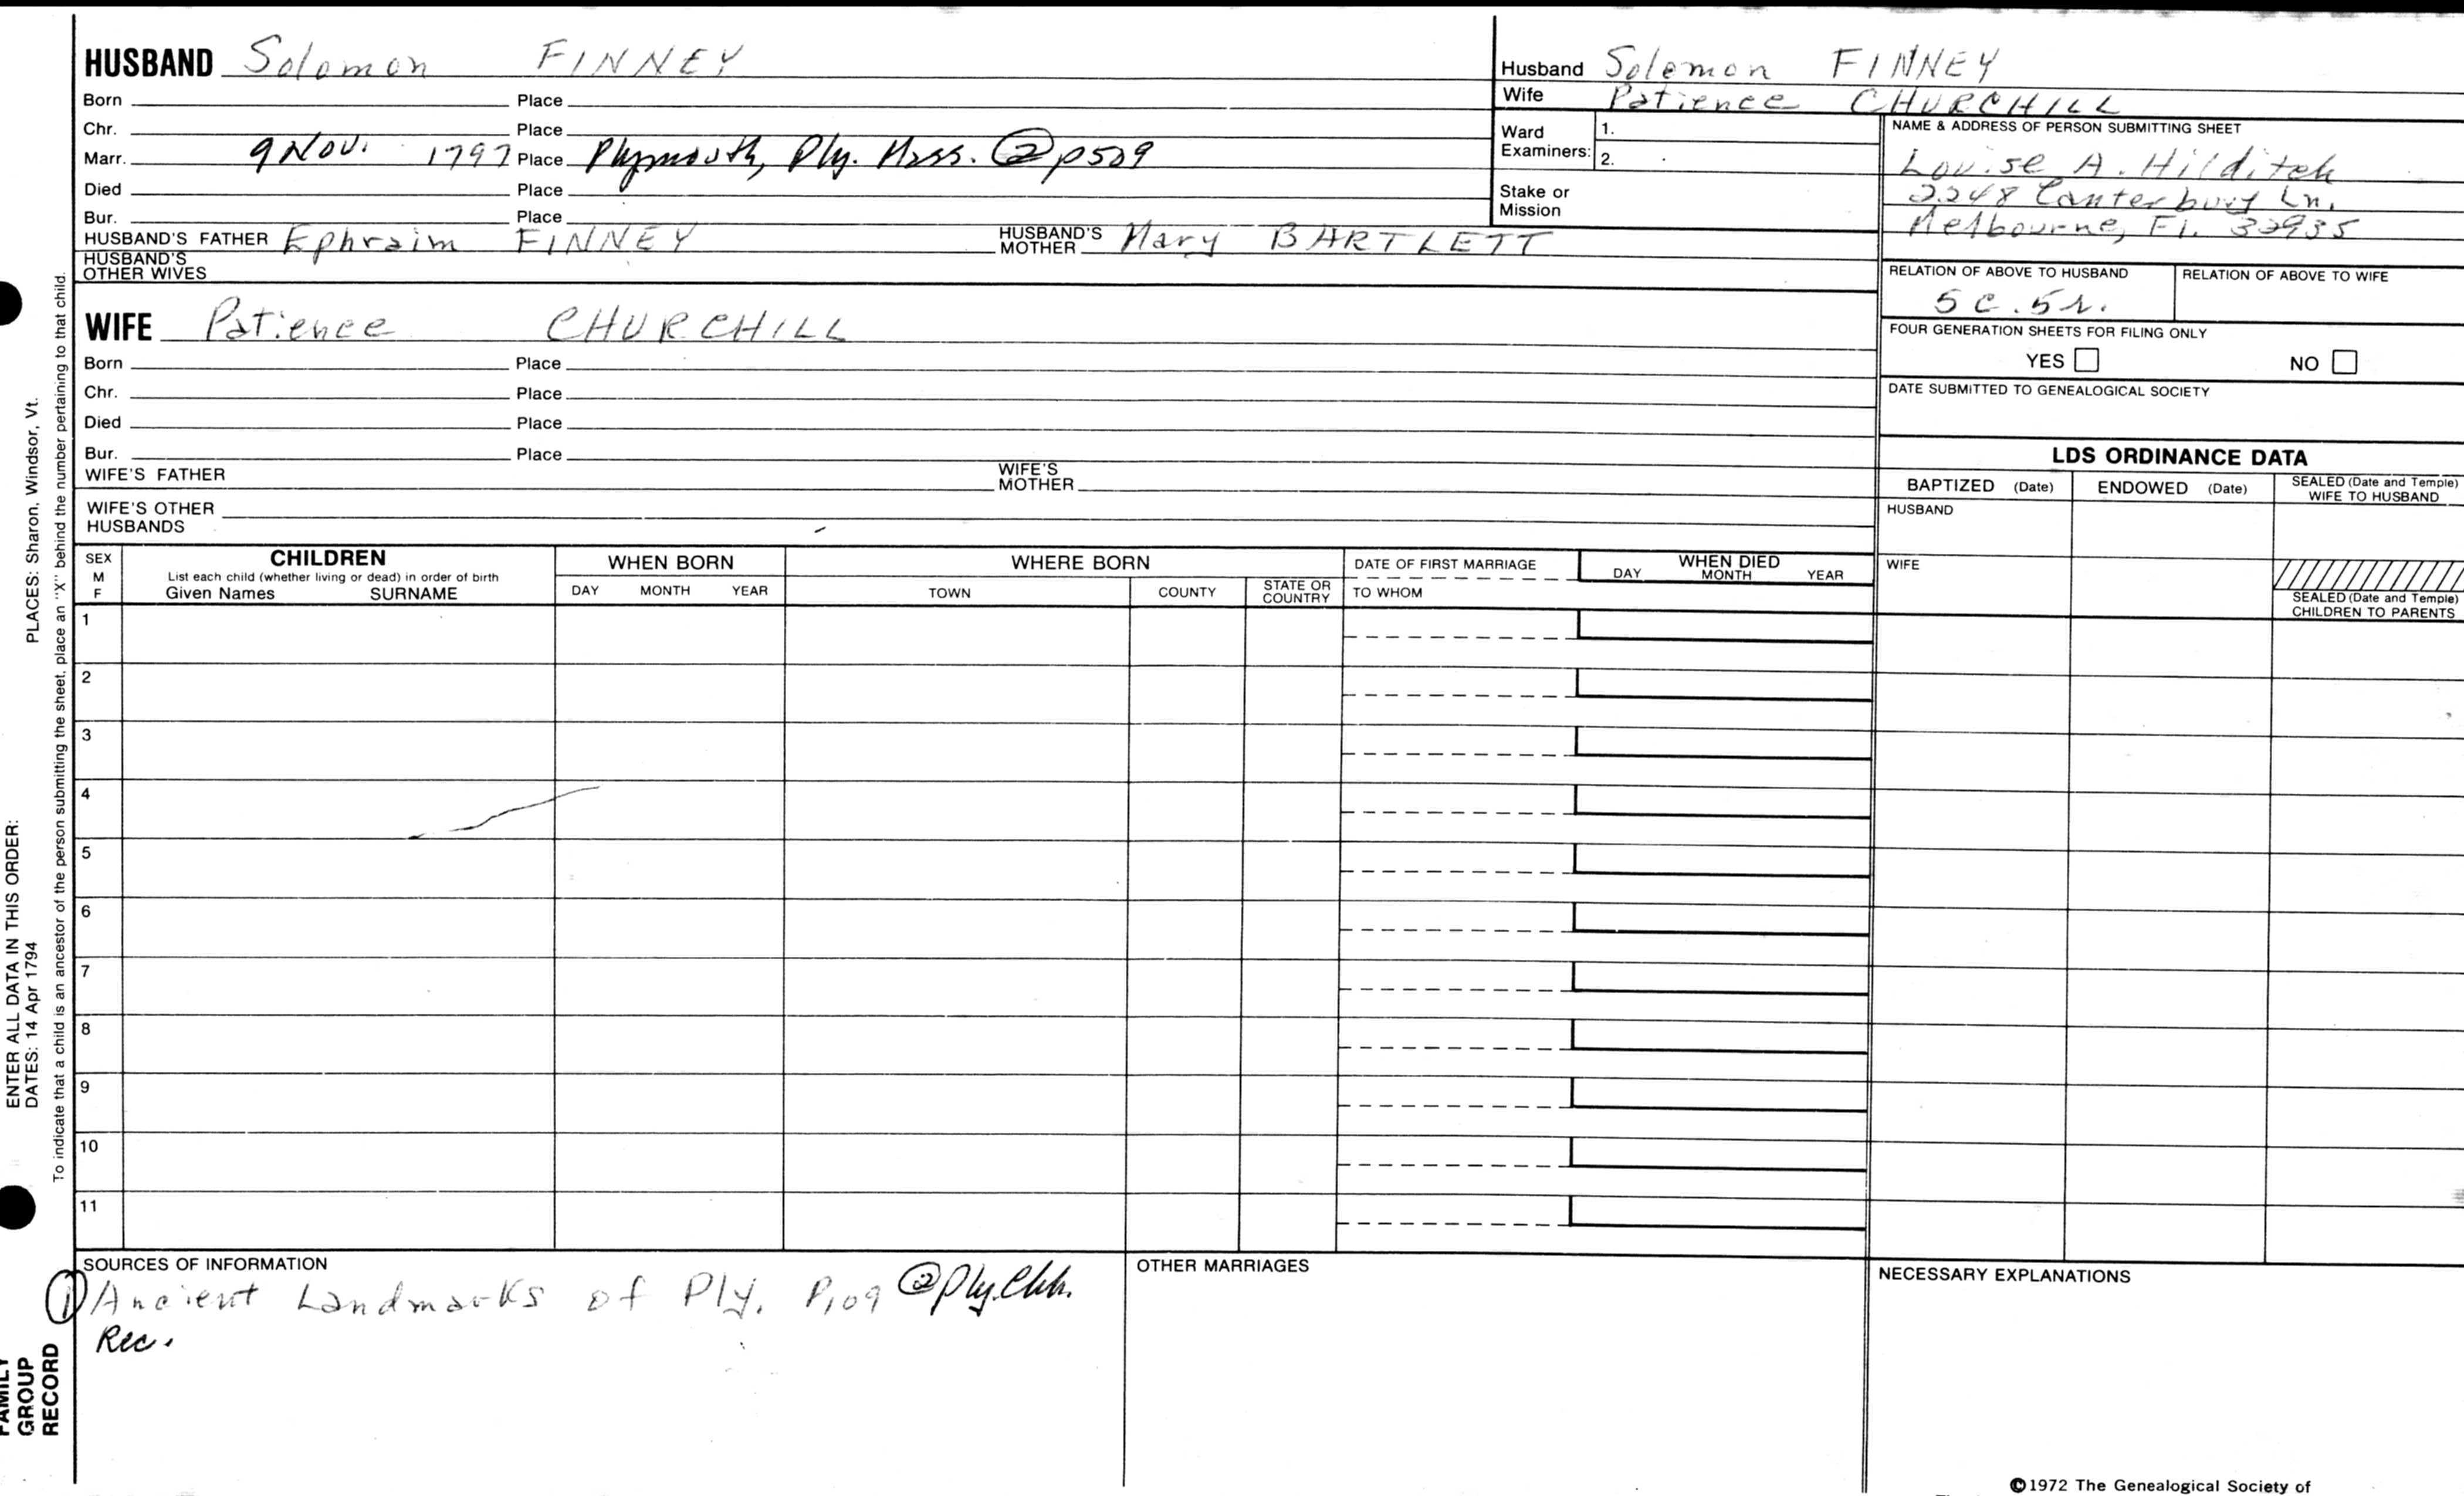 HUSBAND Solomon FINNEY
Born Place
Chr. Place
Marr. 9 Nov. 1797 Place Plymouth, Ply. Mass. ② p509
Died Place
Bur. Place
HUSBAND'S FATHER Ephraim FINNEY HUSBAND'S MOTHER Mary BARTLETT
HUSBAND'S OTHER WIVES
WIFE Patience CHURCHILL
Born Place
Chr. Place
Died Place
Bur. Place
WIFE'S FATHER WIFE'S MOTHER
WIFE'S OTHER HUSBANDS
Husband Solomon FINNEY
Wife Patience CHURCHILL
Ward Examiners: 1.
2.
Stake or Mission
NAME & ADDRESS OF PERSON SUBMITTING SHEET
Louise A. Hilditch
2248 Canterbury Ln.
Melbourne, Fl. 32935
RELATION OF ABOVE TO HUSBAND RELATION OF ABOVE TO WIFE
5 c. 5 r.
FOUR GENERATION SHEETS FOR FILING ONLY
YES NO
DATE SUBMITTED TO GENEALOGICAL SOCIETY
LDS ORDINANCE DATA
BAPTIZED (Date) ENDOWED (Date) SEALED (Date and Temple) WIFE TO HUSBAND
HUSBAND
WIFE
SEALED (Date and Temple) CHILDREN TO PARENTS
SEX M F
CHILDREN
List each child (whether living or dead) in order of birth
Given Names SURNAME
WHEN BORN
DAY MONTH YEAR
WHERE BORN
TOWN COUNTY STATE OR COUNTRY
DATE OF FIRST MARRIAGE
TO WHOM
WHEN DIED
DAY MONTH YEAR
1
2
3
4
5
6
7
8
9
10
11
SOURCES OF INFORMATION
① Ancient Landmarks of Ply. P109 ② Ply. Chh.
Rec.
OTHER MARRIAGES
NECESSARY EXPLANATIONS
©1972 The Genealogical Society of
PLACES: Sharon, Windsor, Vt.
To indicate that a child is an ancestor of the person submitting the sheet, place an "X" behind the number pertaining to that child.
ENTER ALL DATA IN THIS ORDER:
DATES: 14 Apr 1794
FAMILY
GROUP
RECORD